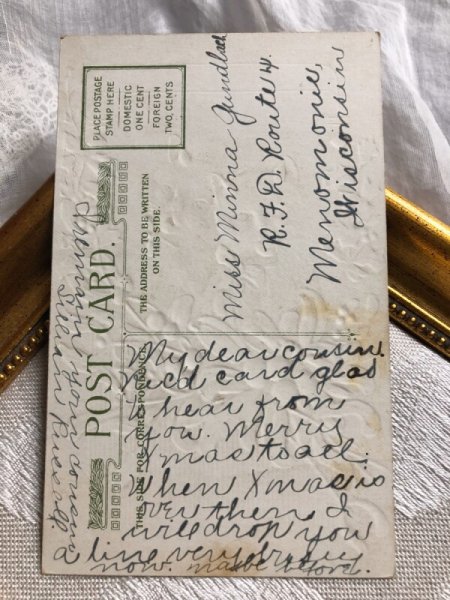 PLACE POSTAGE
STAMP HERE
DOMESTIC
ONE CENT
FOREIGN
TWO CENTS
POST CARD.
THE ADDRESS TO BE WRITTEN
ON THIS SIDE.
THIS SIDE FOR CORRESPONDENCE
Miss Minna Gundlach
R.F.D. Route 4.
Menomonie,
Wisconsin
My dear cousin.
Rec'd card glad
to hear from
you. Merry
Xmas to all.
When Xmas is
over then I
will drop you
a line very
now.
I remain your